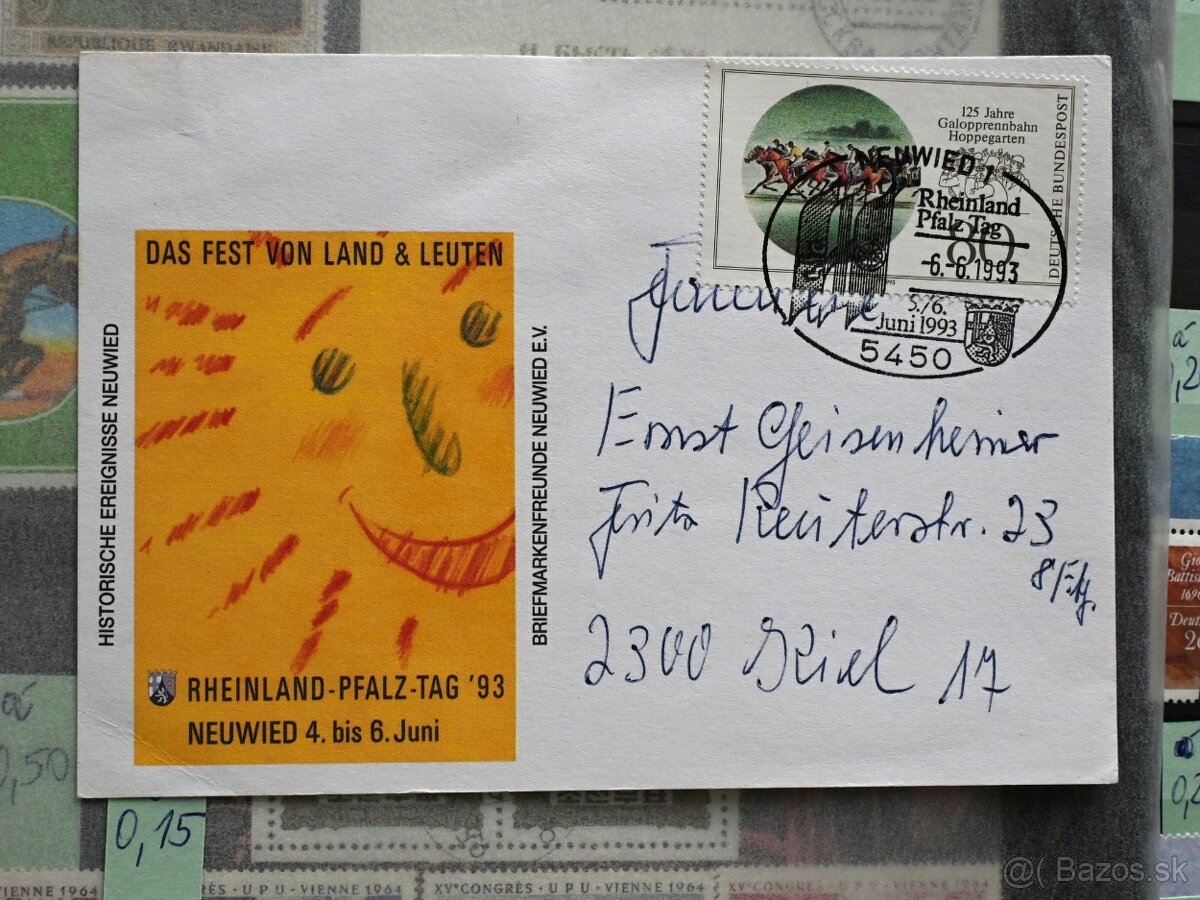 REPUBLIQUE RWANDAISE
125 Jahre
Galopprennbahn
Hoppegarten
DEUTSCHE BUNDESPOST
80
NEUWIED 1
Rheinland
Pfalz Tag
-6.-6.1993
5./6.
Juni 1993
5450
DAS FEST VON LAND & LEUTEN
HISTORISCHE EREIGNISSE NEUWIED
BRIEFMARKENFREUNDE NEUWIED E.V.
RHEINLAND-PFALZ-TAG '93
NEUWIED 4. bis 6. Juni
Ernst Geisenheimer
Fritz Reuterstr. 23
2300 Kiel 17
0,50
0,15
VIENNE 1964
XVe CONGRÈS · UPU · VIENNE 1964
@( Bazos.sk